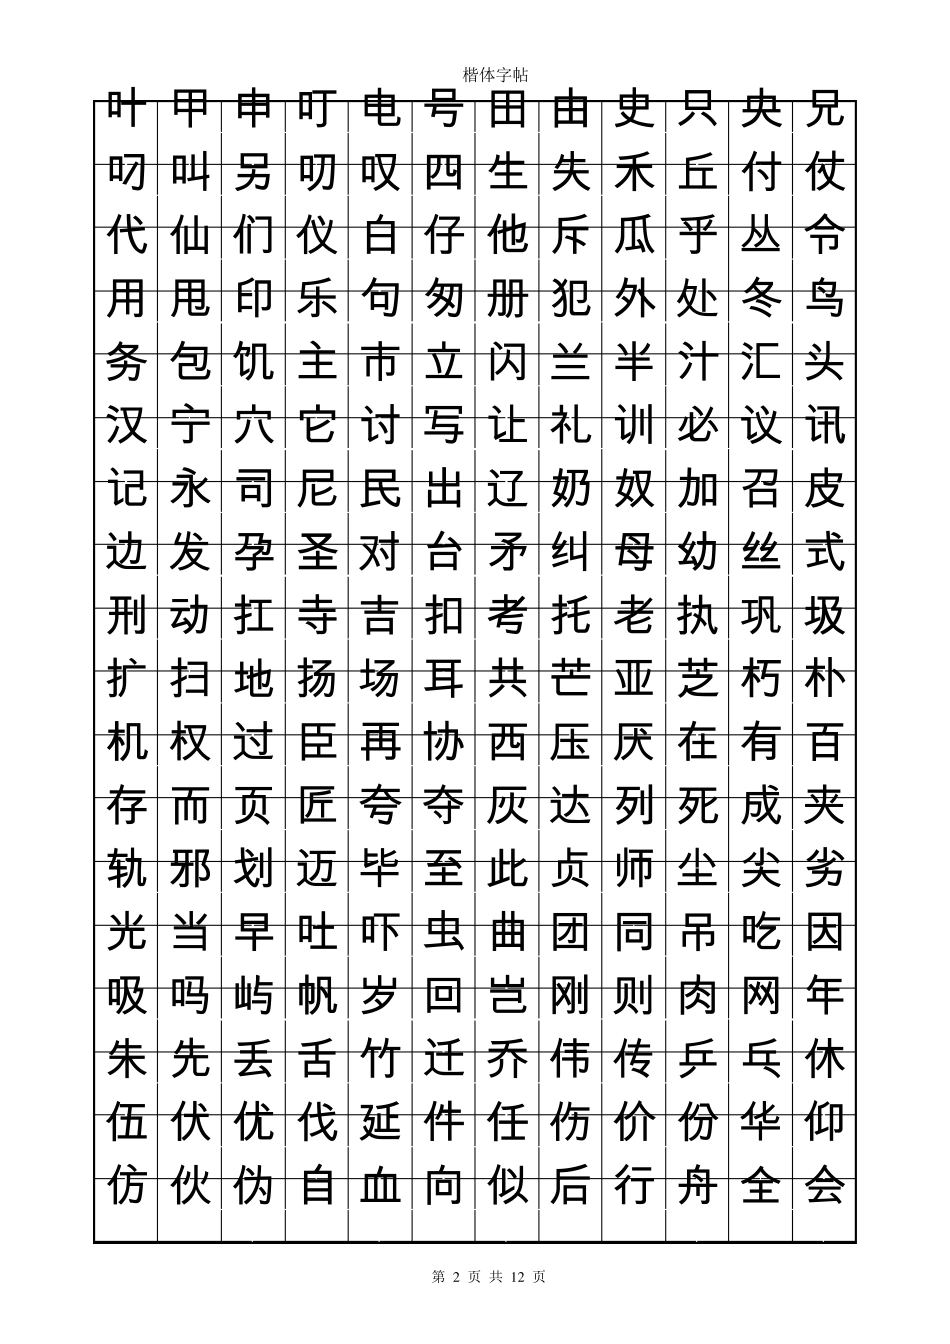 楷体字帖
叶甲申叮电号田由史只央兄
叼叫另叨叹四生失禾丘付仗
代仙们仪自仔他斥瓜乎丛令
用甩印乐句匆册犯外处冬鸟
务包饥主市立闪兰半汁汇头
汉宁穴它讨写让礼训必议讯
记永司尼民出辽奶奴加召皮
边发孕圣对台矛纠母幼丝式
刑动扛寺吉扣考托老执巩圾
扩扫地扬场耳共芒亚芝朽朴
机权过臣再协西压厌在有百
存而页匠夸夺灰达列死成夹
轨邪划迈毕至此贞师尘尖劣
光当早吐吓虫曲团同吊吃因
吸吗屿帆岁回岂刚则肉网年
朱先丢舌竹迁乔伟传乒乓休
伍伏优伐延件任伤价份华仰
仿伙伪自血向似后行舟全会
第 2 页 共 12 页